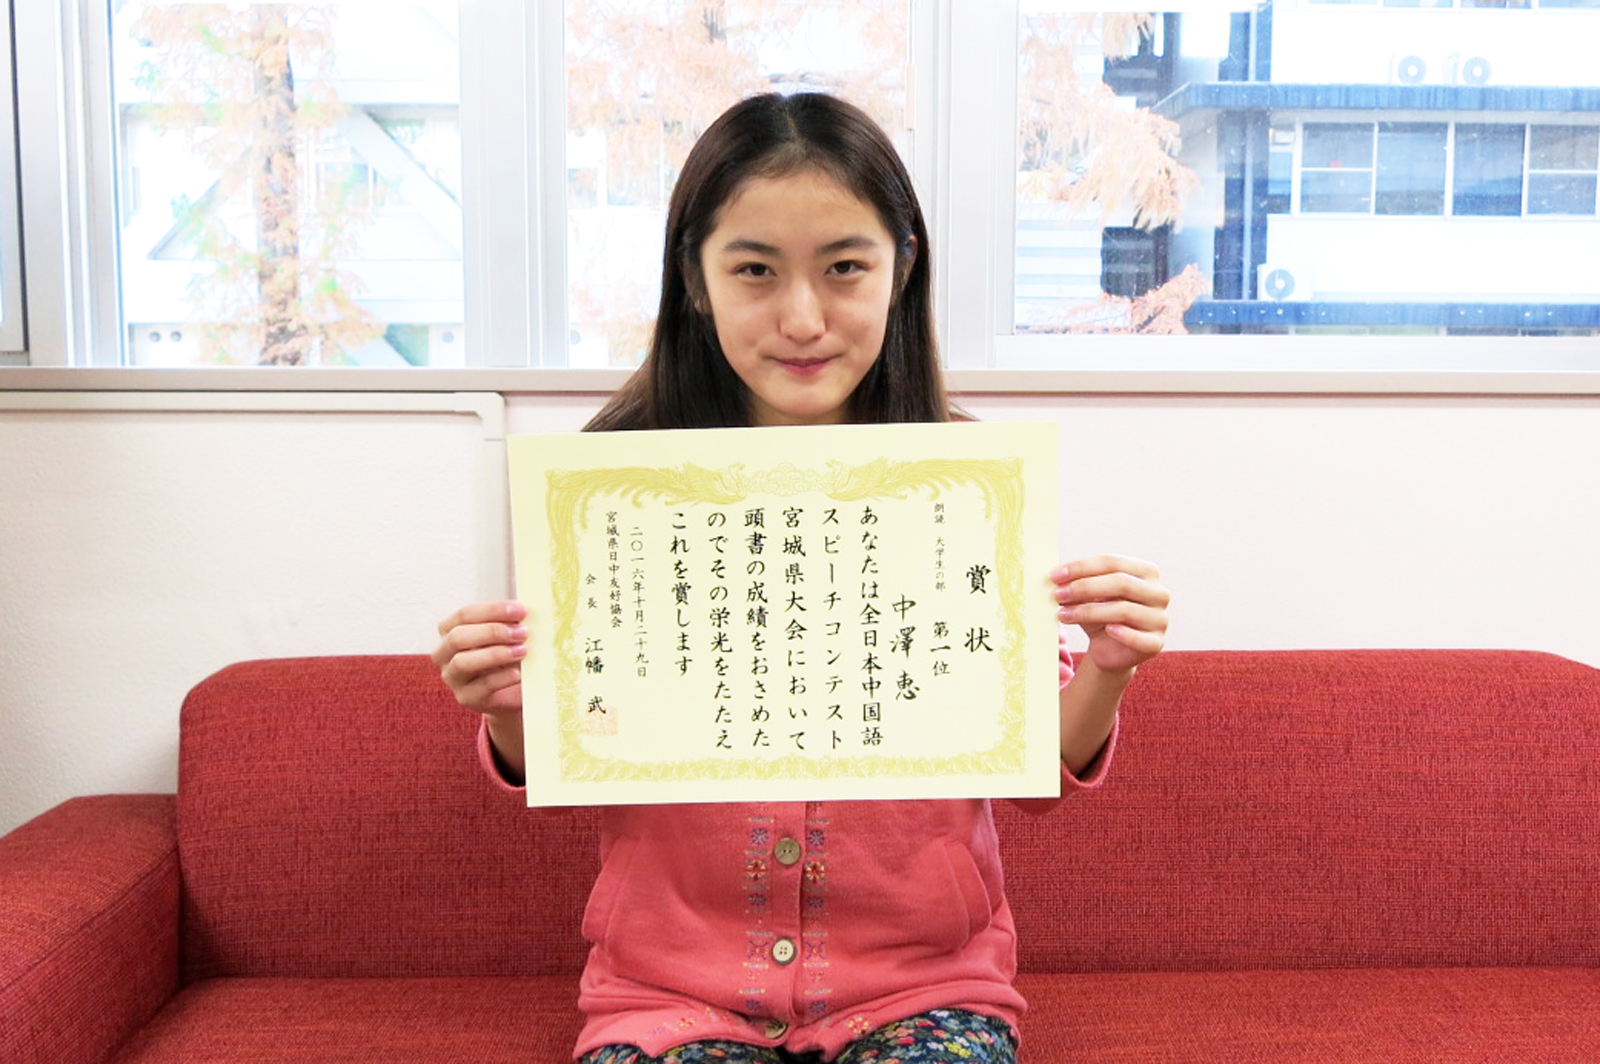 賞状
朗読 大学生の部 第一位
中澤恵
あなたは全日本中国語
スピーチコンテスト
宮城県大会において
頭書の成績をおさめた
のでその栄光をたたえ
これを賞します
二〇一六年十月二十九日
宮城県日中友好協会
会長 江幡 武